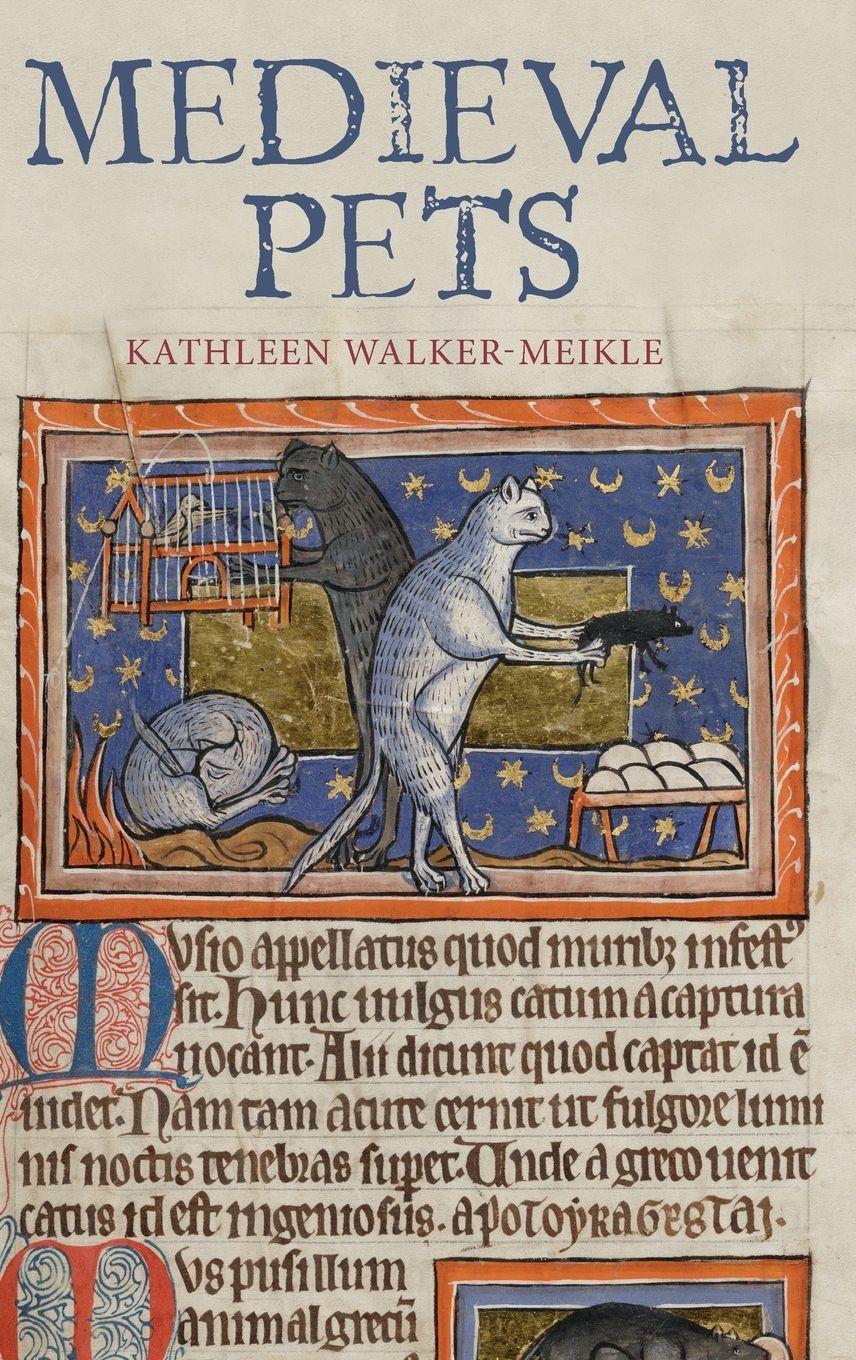 MEDIEVAL
PETS
KATHLEEN WALKER-MEIKLE
Musio appellatus quod muribꝫ infest᷒
sit. Hunc uulgus catum a captura
uocant. Alii dicunt quod captat id ē
uidet. Nam tam acute cernit ut fulgore lumi
nis noctis tenebras suꝑet. Unde a greco uenit
catus id est ingeniosus. apoToyKaGESTAJ.
Mus pusillum
animal grecū